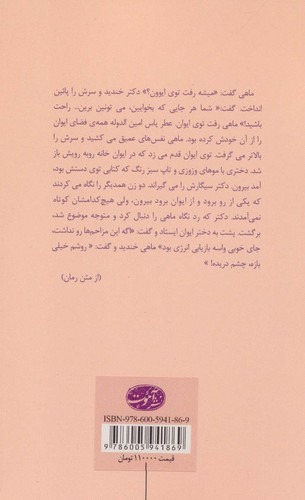 ماهی گفت: «میشه رفت توی ایوون؟» دکتر خندید و سرش را پائین
انداخت. گفت:« شما هر جایی که بخوایین، می تونین برین... راحت
باشید!» ماهی رفت توی ایوان. عطر یاس امین الدوله همه‌ی فضای ایوان
را از آن خودش کرده بود. ماهی نفس‌های عمیق می کشید و سرش را
بالاتر می گرفت. توی ایوان قدم می زد که در ایوان خانه روبه رویش باز
شد. دختری با موهای وزوزی و تاپ سبز رنگ که کتابی توی دستش بود،
آمد بیرون. دکتر سیگارش را می گیراند. دو زن همدیگر را نگاه می کردند
که یکی از رو برود و از ایوان برود بیرون، ولی هیچ‌کدامشان کوتاه
نمی‌آمدند. دکتر که رد نگاه ماهی را دنبال کرد و متوجه موضوع شد،
برگشت. پشت به دختر ایوان ایستاد و گفت: «اگه این مزاحم‌ها رو نداشت،
جای خوبی واسه بازیابی انرژی بود» ماهی خندید و گفت: « روشم خیلی
بازه، چشم دریده! »
(از متن رمان)
ISBN-978-600-5941-86-9
9786005941869
قیمت ۱۱۰۰۰۰ تومان